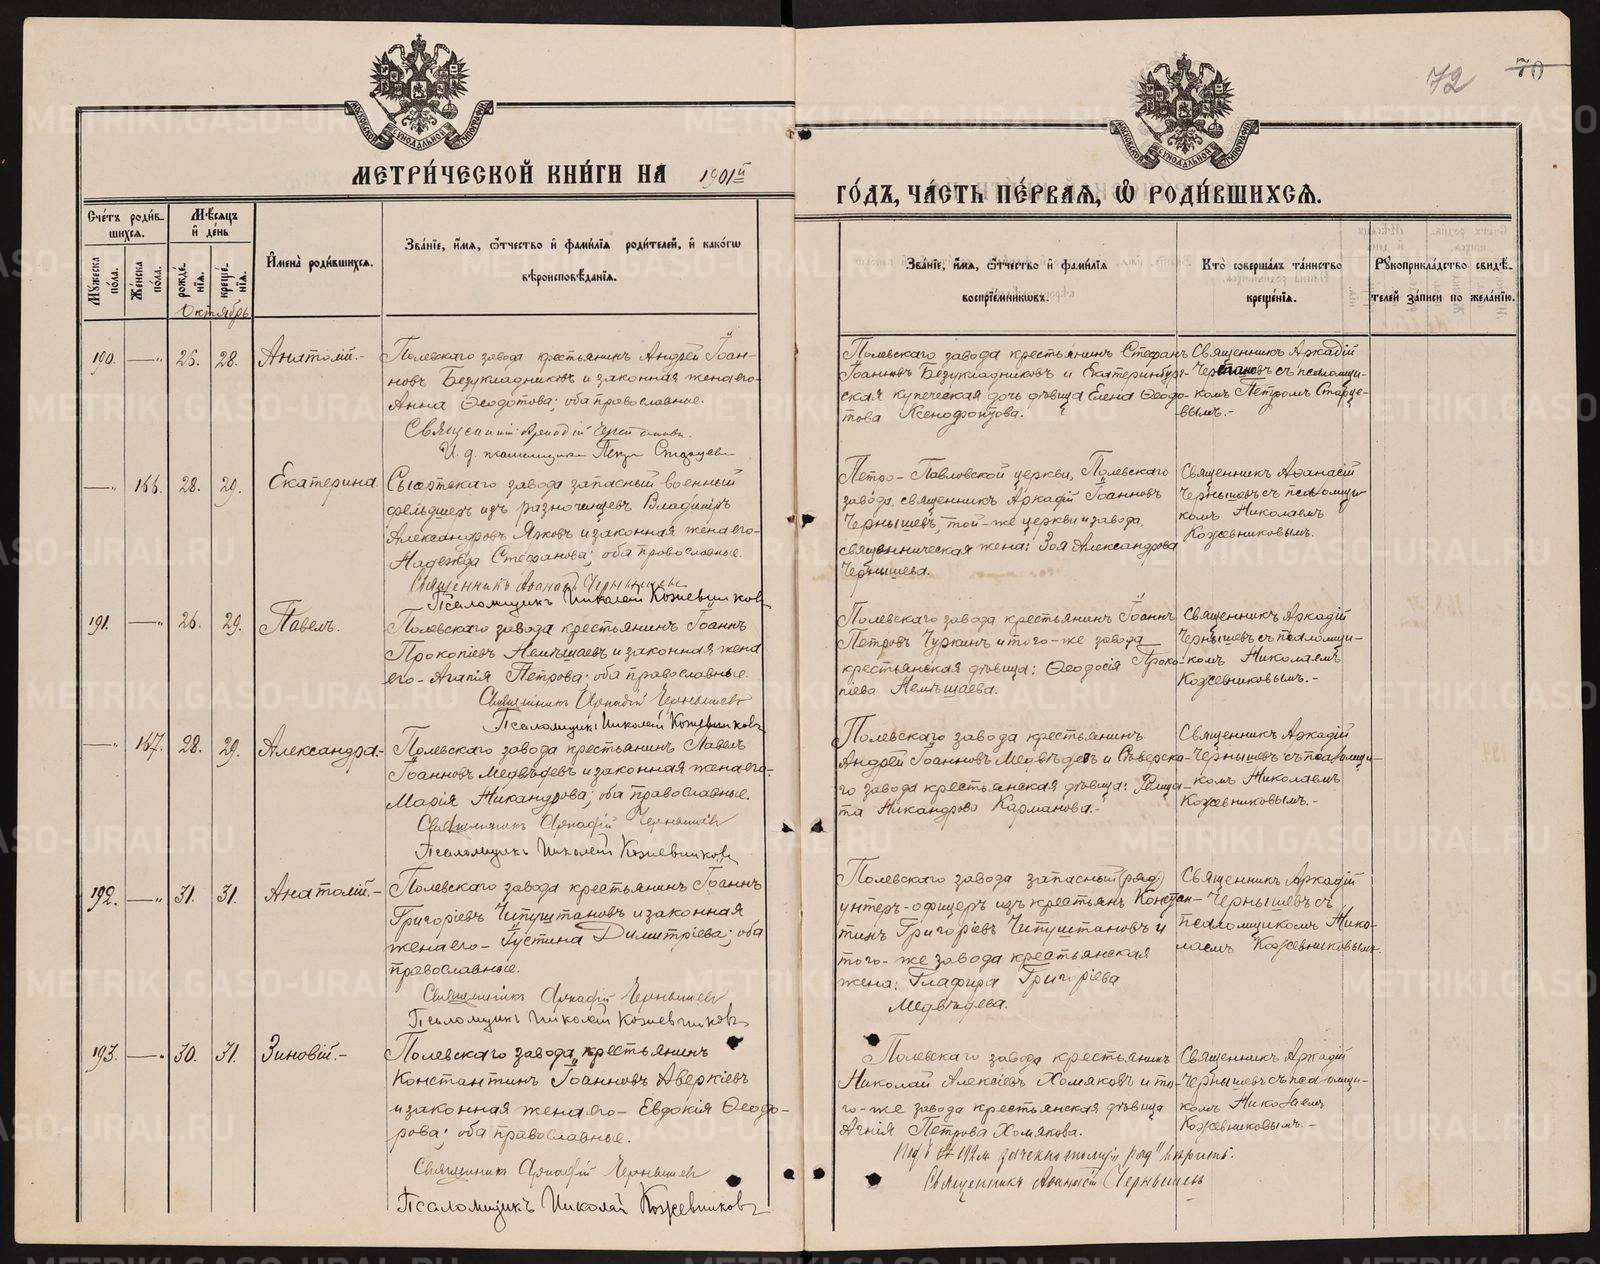 72 70
МЕТРИ́ЧЕСКОЙ КНИ́ГИ НА 1901й
ГО́ДЪ, ЧА́СТЬ ПЕ́РВАЯ, Ѡ҆ РОДИ́ВШИХСЯ.
Сче́тъ роди́в-
шихся.
Мѣ́сяцъ
и҆ де́нь
И҆мена̀ роди́вшихся.
Зва́нїе, и҆́мя, ѻ҆́тчество и҆ фами́лїя роди́телей, и҆ како́гѡ
вѣроисповѣ́данїя.
Мꙋ́жеска по́ла.
Же́нска по́ла.
рожде́нїя.
креще́нїя.
Октябрь
Зва́нїе, и҆́мя, ѻ҆́тчество и҆ фами́лїя
воспрїе́мникѡвъ.
Кто̀ соверша́лъ та́инство
креще́нїя.
Рꙋкоприкла́дство свидѣ́-
телей за́писи по жела́нїю.
190. —„ 26. 28. Анатолій.-
Полевскаго завода крестьянинъ Андрей Іоан-
новъ Безукладниковъ и законная жена его-
Анна Ѳеодотова; оба православные.
Священникъ Аркадій
И. д. псаломщика Петръ Старцевъ
Полевскаго завода крестьянинъ Стефанъ
Іоанновъ Безукладниковъ и Екатеринбург-
ская купеческая дочь дѣвица Елена Ѳеодо-
това Ксенофонтова.
Священникъ Аркадій
съ псаломщи-
комъ Петромъ Старце-
вымъ.-
—„ 166. 28. 29. Екатерина
Сысертскаго завода запасный военный
фельдшеръ изъ разночинцевъ Владиміръ
Александровъ Яковъ и законная жена его-
Надежда Стефанова; оба православные.
Священникъ Аѳанасій Чернышевъ
Псаломщикъ Николай Кожевниковъ
Петро-Павловской церкви, Полевскаго
завода, священникъ Аркадій Іоанновъ
Чернышевъ, той-же церкви и завода,
священническая жена: Зоя Александрова
Чернышева.
Священникъ Аѳанасій
Чернышевъ съ псаломщи-
комъ Николаемъ
Кожевниковымъ.
191. —„ 26. 29. Павелъ.
Полевскаго завода крестьянинъ Іоаннъ
Прокопіевъ Немѣшаевъ и законная жена
его- Агапія Петрова; оба православные.
Священникъ Аркадій Чернышевъ
Псаломщикъ Николай Кожевниковъ
Полевскаго завода крестьянинъ Іоаннъ
Петровъ Чуркинъ и того-же завода
крестьянская дѣвица: Ѳеодосія Проко-
піева Немѣшаева.
Священникъ Аркадій
Чернышевъ съ псаломщи-
комъ Николаемъ
Кожевниковымъ.-
—„ 167. 28. 29. Александра.-
Полевскаго завода крестьянинъ Павелъ
Іоанновъ Медвѣдевъ и законная жена его-
Марія Никандрова; оба православные.
Священникъ Аркадій Чернышевъ
Псаломщикъ Николай Кожевниковъ
Полевскаго завода крестьянинъ
Андрей Іоанновъ Медвѣдевъ и Сѣверска-
го завода крестьянская дѣвица: Фелица-
та Никандрова Карманова.-
Священникъ Аркадій
Чернышевъ съ псаломщи-
комъ Николаемъ
Кожевниковымъ.-
192. —„ 31. 31. Анатолій.-
Полевскаго завода крестьянинъ Іоаннъ
Григоріевъ Чипуштановъ и законная
жена его- Іустина Димитріева; оба
православные.
Священникъ Аркадій Чернышевъ
Псаломщикъ Николай Кожевниковъ
Полевскаго завода запасный (ряд)
унтеръ-офицеръ изъ крестьянъ Констан-
тинъ Григоріевъ Чипуштановъ и
того-же завода крестьянская
жена: Глафира Григоріева
Медвѣдева.
Священникъ Аркадій
Чернышевъ съ
псаломщикомъ Нико-
лаемъ Кожевниковымъ.
193. —„ 30. 31. Зиновій.-
Полевскаго завода крестьянинъ
Константинъ Іоанновъ Аверкіевъ
и законная жена его- Евдокія Ѳеодо-
рова; оба православные.
Священникъ Аркадій Чернышевъ
Псаломщикъ Николай Кожевниковъ
Полевскаго завода крестьянинъ
Николай Алексіевъ Хомяковъ и то-
го-же завода крестьянская дѣвица
Агнія Петрова Хомякова.
Священникъ Аркадій
Чернышевъ съ псаломщи-
комъ Николаемъ
Кожевниковымъ.-
„ряд" вѣрить.
Священникъ Аѳанасій Чернышевъ
METRIKI.GASO-URAL.RU